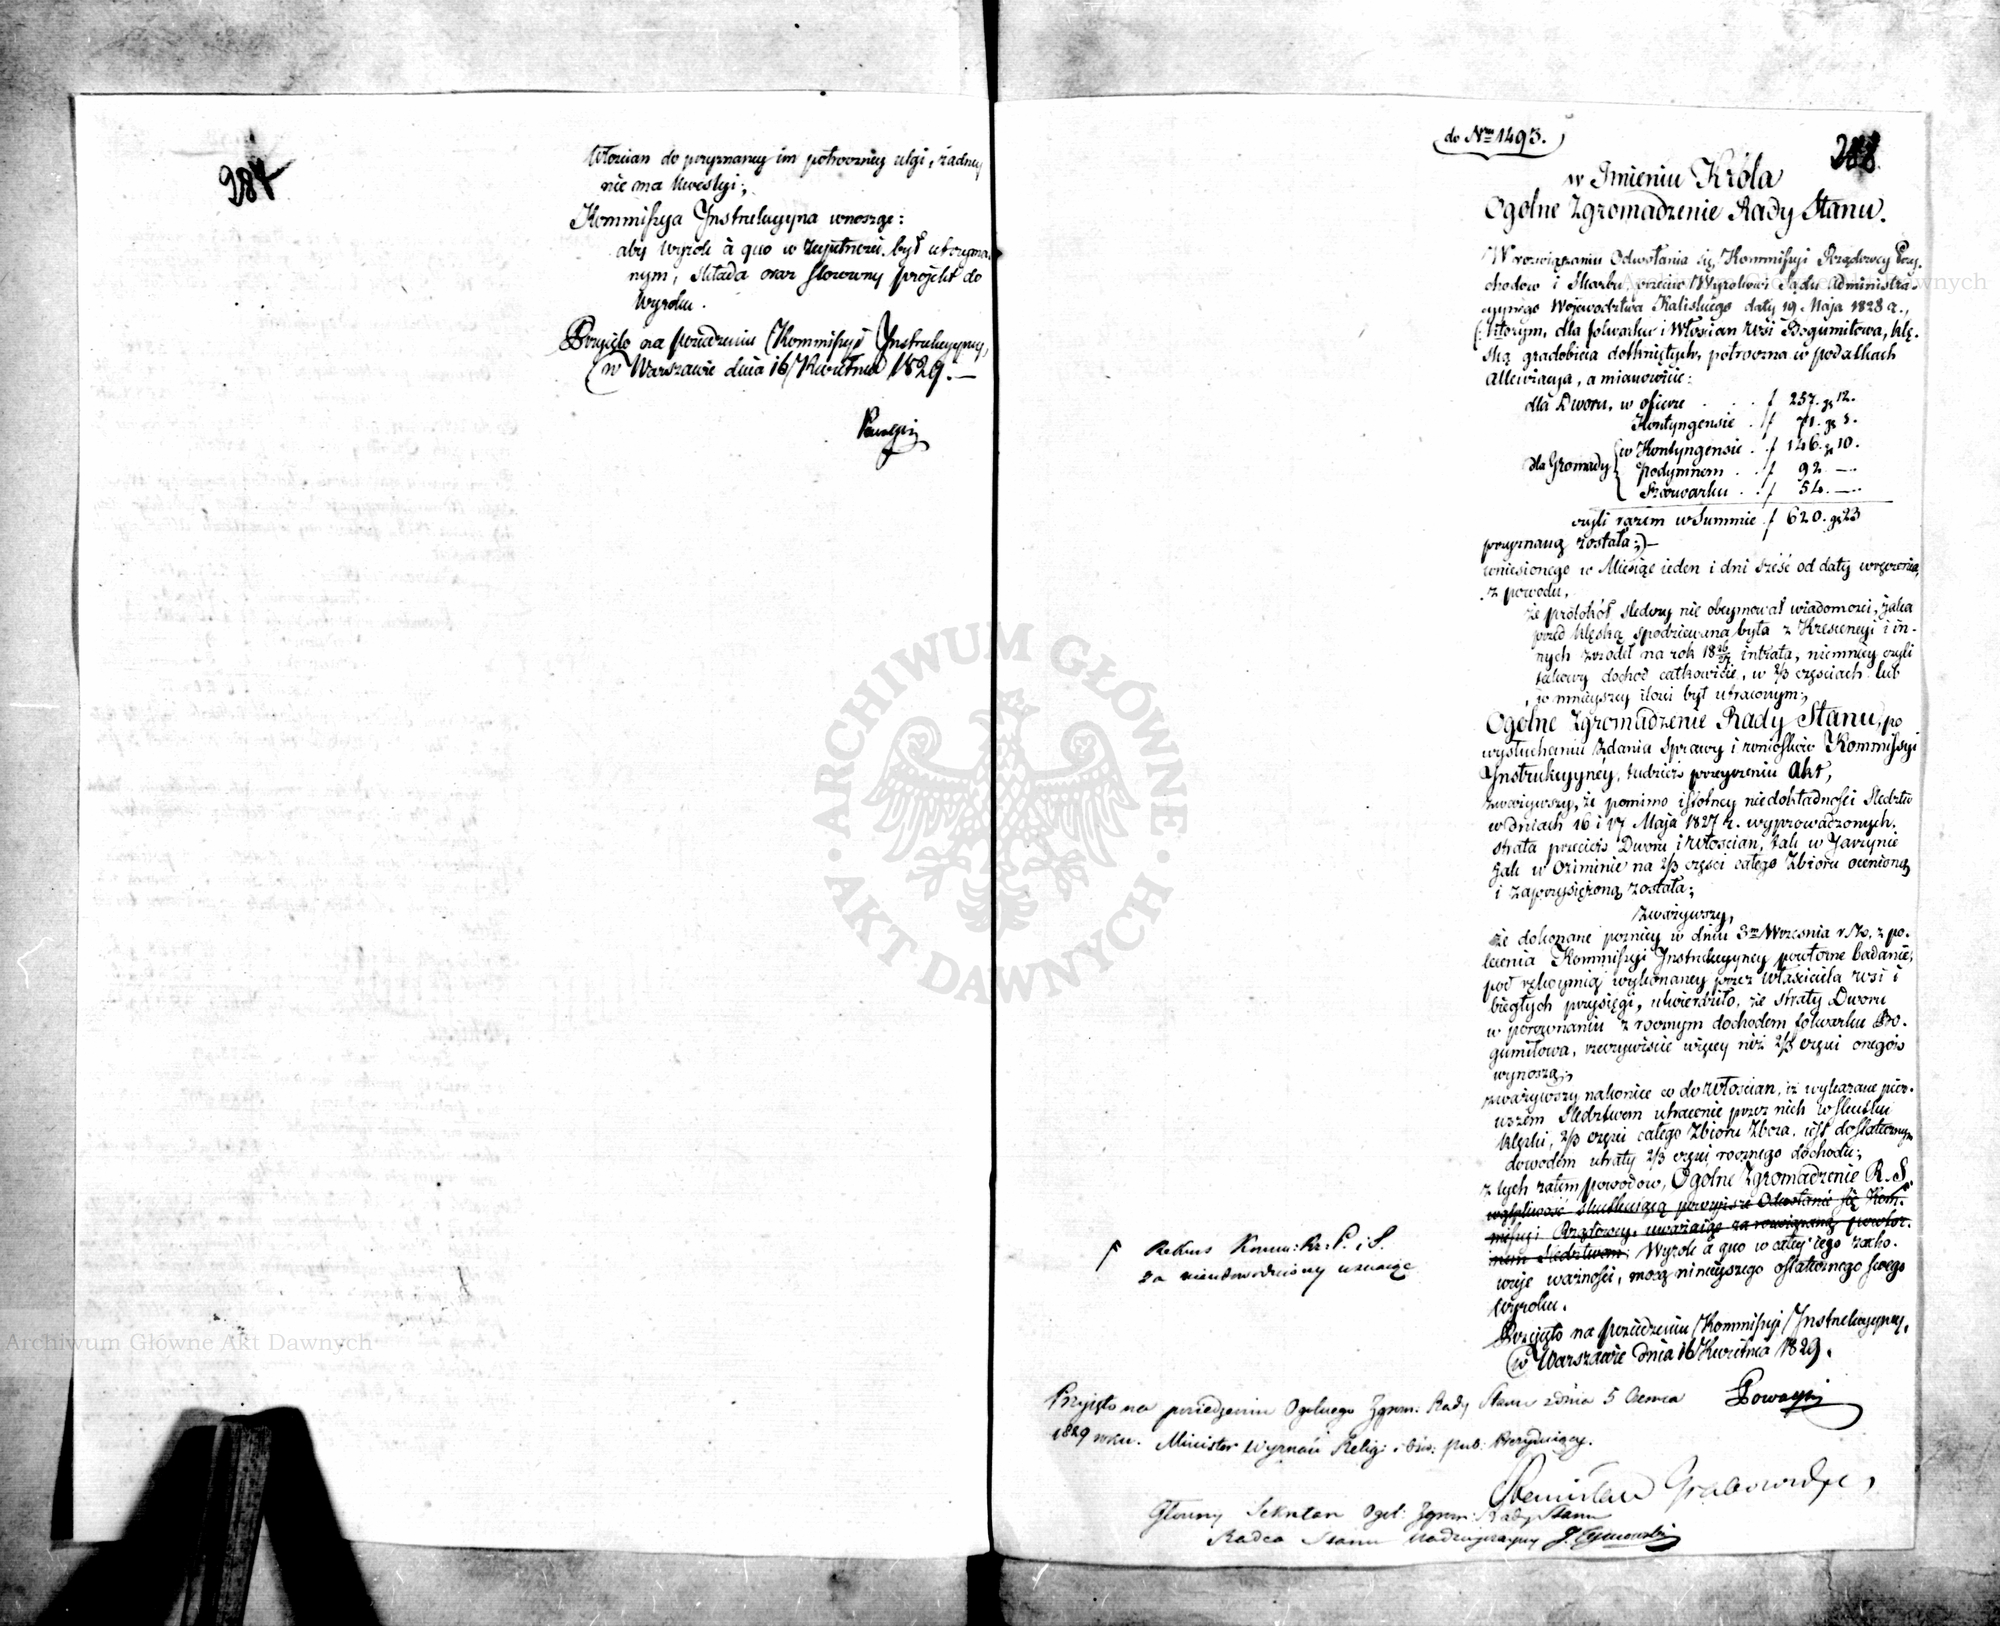 287
Włościan do przyznaney im potroczney ulgi, żadney
nie ma kwestyi;
Kommissya Instrukcyyna wnosząc:
aby Wyrok à quo w zupełności był utrzyma-
nym, składa oraz stosowny projekt do
Wyroku.
Przyjęto na posiedzeniu Kommissyi Instrukcyyney,
w Warszawie dnia 16 Kwietnia 1829.—
do Nru 1493.
288.
w Imieniu Króla
Ogólne Zgromadzenie Rady Stanu.
W rozwiązaniu Odwołania się, Kommissyi Rządowey Przy-
chodow i Skarbu, przeciw Wyrokowi Sądu Administra-
cyynego Województwa Kaliskiego daty 19. Maja 1828 r.,
(: którym, dla folwarku i Włościan wsi Bogumiłowa, klę-
ską gradobicia dotkniętych, potroczna w podatkach
allewiacya, a mianowicie:
dla Dworu, w ofierze . . f 257. gr 12.
Kontyngensie . f 71. gr 1.
dla Gromady w Kontyngensie . f 146. gr 10.
podymnem . . f 92 —.
Szarwarku . . f 54. —.
czyli razem w Summie f 620. gr 23
przyznaną została:)—
wniesionego w Miesiąc ieden i dni sześć od daty wręczenia,
z powodu,
że protokół śledczy nie obeymował wiadomości, jaka
przed klęską spodziewana była z Krescencyi i in-
nych źrodeł na rok 1826/27 intrata, niemniey czyli
takowy dochod całkowicie, w 2/3 częściach lub
w mnieyszey ilości był utraconym;
Ogólne Zgromadzenie Rady Stanu, po
wysłuchaniu zdania sprawy i wniosków Kommissyi
Instrukcyyney, tudzież przeyrzeniu Akt,
zważywszy, że pomimo istotney niedokładności śledztw
w dniach 16 i 17 Maja 1827 r. wyprowadzonych.
strata przecież Dworu i Włościan, tak w Jarzynie
jak w Oziminie na 2/3 części całego Zbioru ocenioną
i zaprzysiężoną została;
zważywszy,
że dokonane pozniey w dniu 3m Wrzesnia r. z., z po-
lecenia Kommissyi Instrukcyyney powtorne badanie,
pod rękoymią wykonaney przez właściciela wsi i
biegłych przysięgi, utwierdziło, że straty Dworu
w porownaniu z rocznym dochodem folwarku Bo-
gumiłowa, rzeczywiscie więcey niż 2/3 części onegoż
wynoszą;
zważywszy nakoniec co do Włościan, iż wykazane pier-
wszem śledztwem utracenie przez nich w skutku
klęski, 2/3 części całego Zbioru Zboża, iest dostatecznym
dowodem utraty 2/3 części rocznego dochodu;
z tych zatem powodow, Ogólne Zgromadzenie R. S.
wątpliwość skutkuiącą powyższe Odwołanie się Kom-
missyi Rządowey, uważaiąc za rozwiązaną powtor-
nem śledztwem; Wyrok a quo w całey iego zacho-
wuje ważności, mocą ninieyszego ostatecznego swego
wyroku.
Rekurs Komm: Rz: P. i S.
za nieudowodniony uznaiąc
Przyjęto na posiedzeniu Kommissyi Instrukcyyney,
w Warszawie dnia 16 Kwietnia 1829.
Przyjęto na posiedzeniu Ogólnego Zgrom: Rady Stanu z dnia 5 Czerwca
1829 roku. Minister Wyznań Relig: i Ośw: pub: Prezyduiący.
Stanisław Grabowski
Główny Sekretarz Ogól: Zgrom: Rady Stanu
Radca Stanu Nadzwyczayny J. Tymowski
ARCHIWUM GŁÓWNE AKT DAWNYCH
Archiwum Główne Akt Dawnych
Archiwum Główne Akt Dawnych